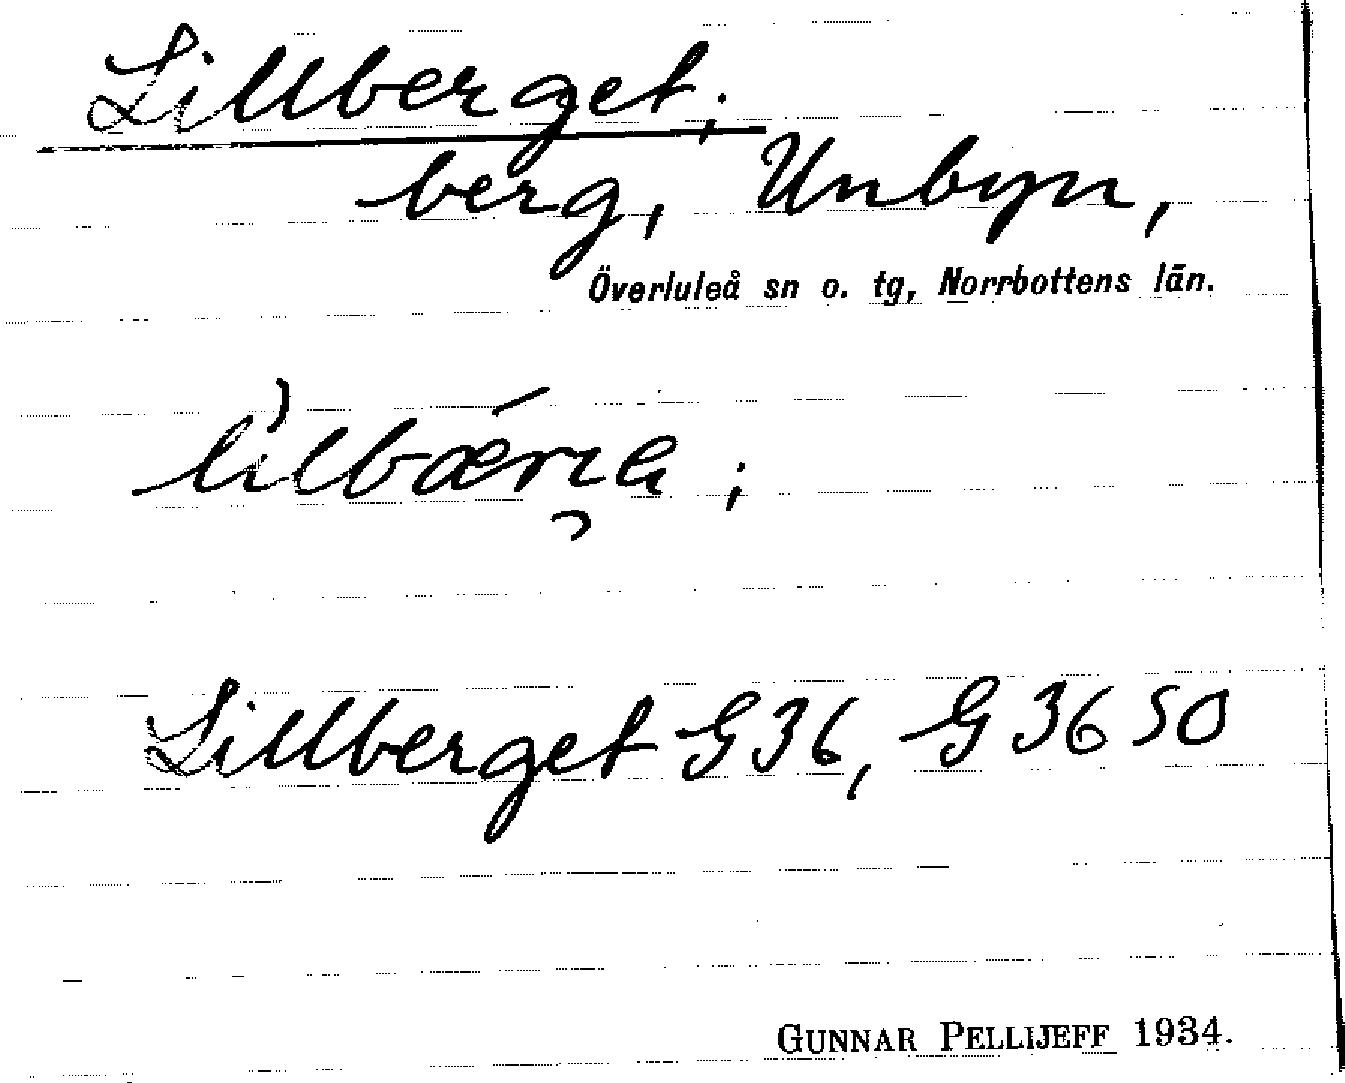 Lillberget;
berg, Unbyn,
Överluleå sn o. tg, Norrbottens län.
Lillberget G36, G 36 50
GUNNAR PELLIJEFF 1934.